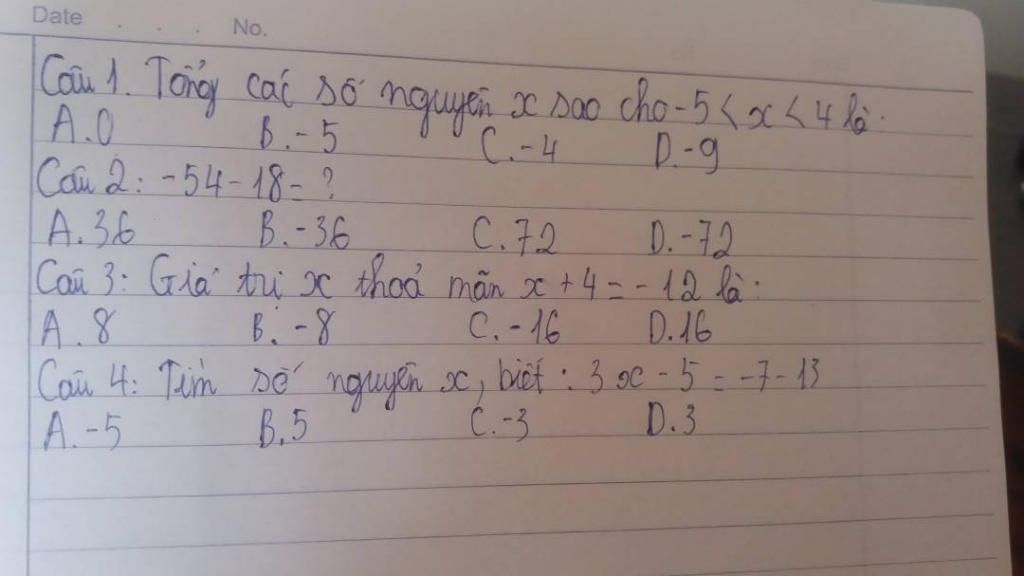 Date . . . No.
Câu 1. Tổng các số nguyên x sao cho -5 < x < 4 là:
A. 0 B. -5 C. -4 D. -9
Câu 2: -54 - 18 = ?
A. 36 B. -36 C. 72 D. -72
Câu 3: Giá trị x thoả mãn x + 4 = -12 là:
A. 8 B. -8 C. -16 D. 16
Câu 4: Tìm số nguyên x, biết: 3x - 5 = -7 - 13
A. -5 B. 5 C. -3 D. 3